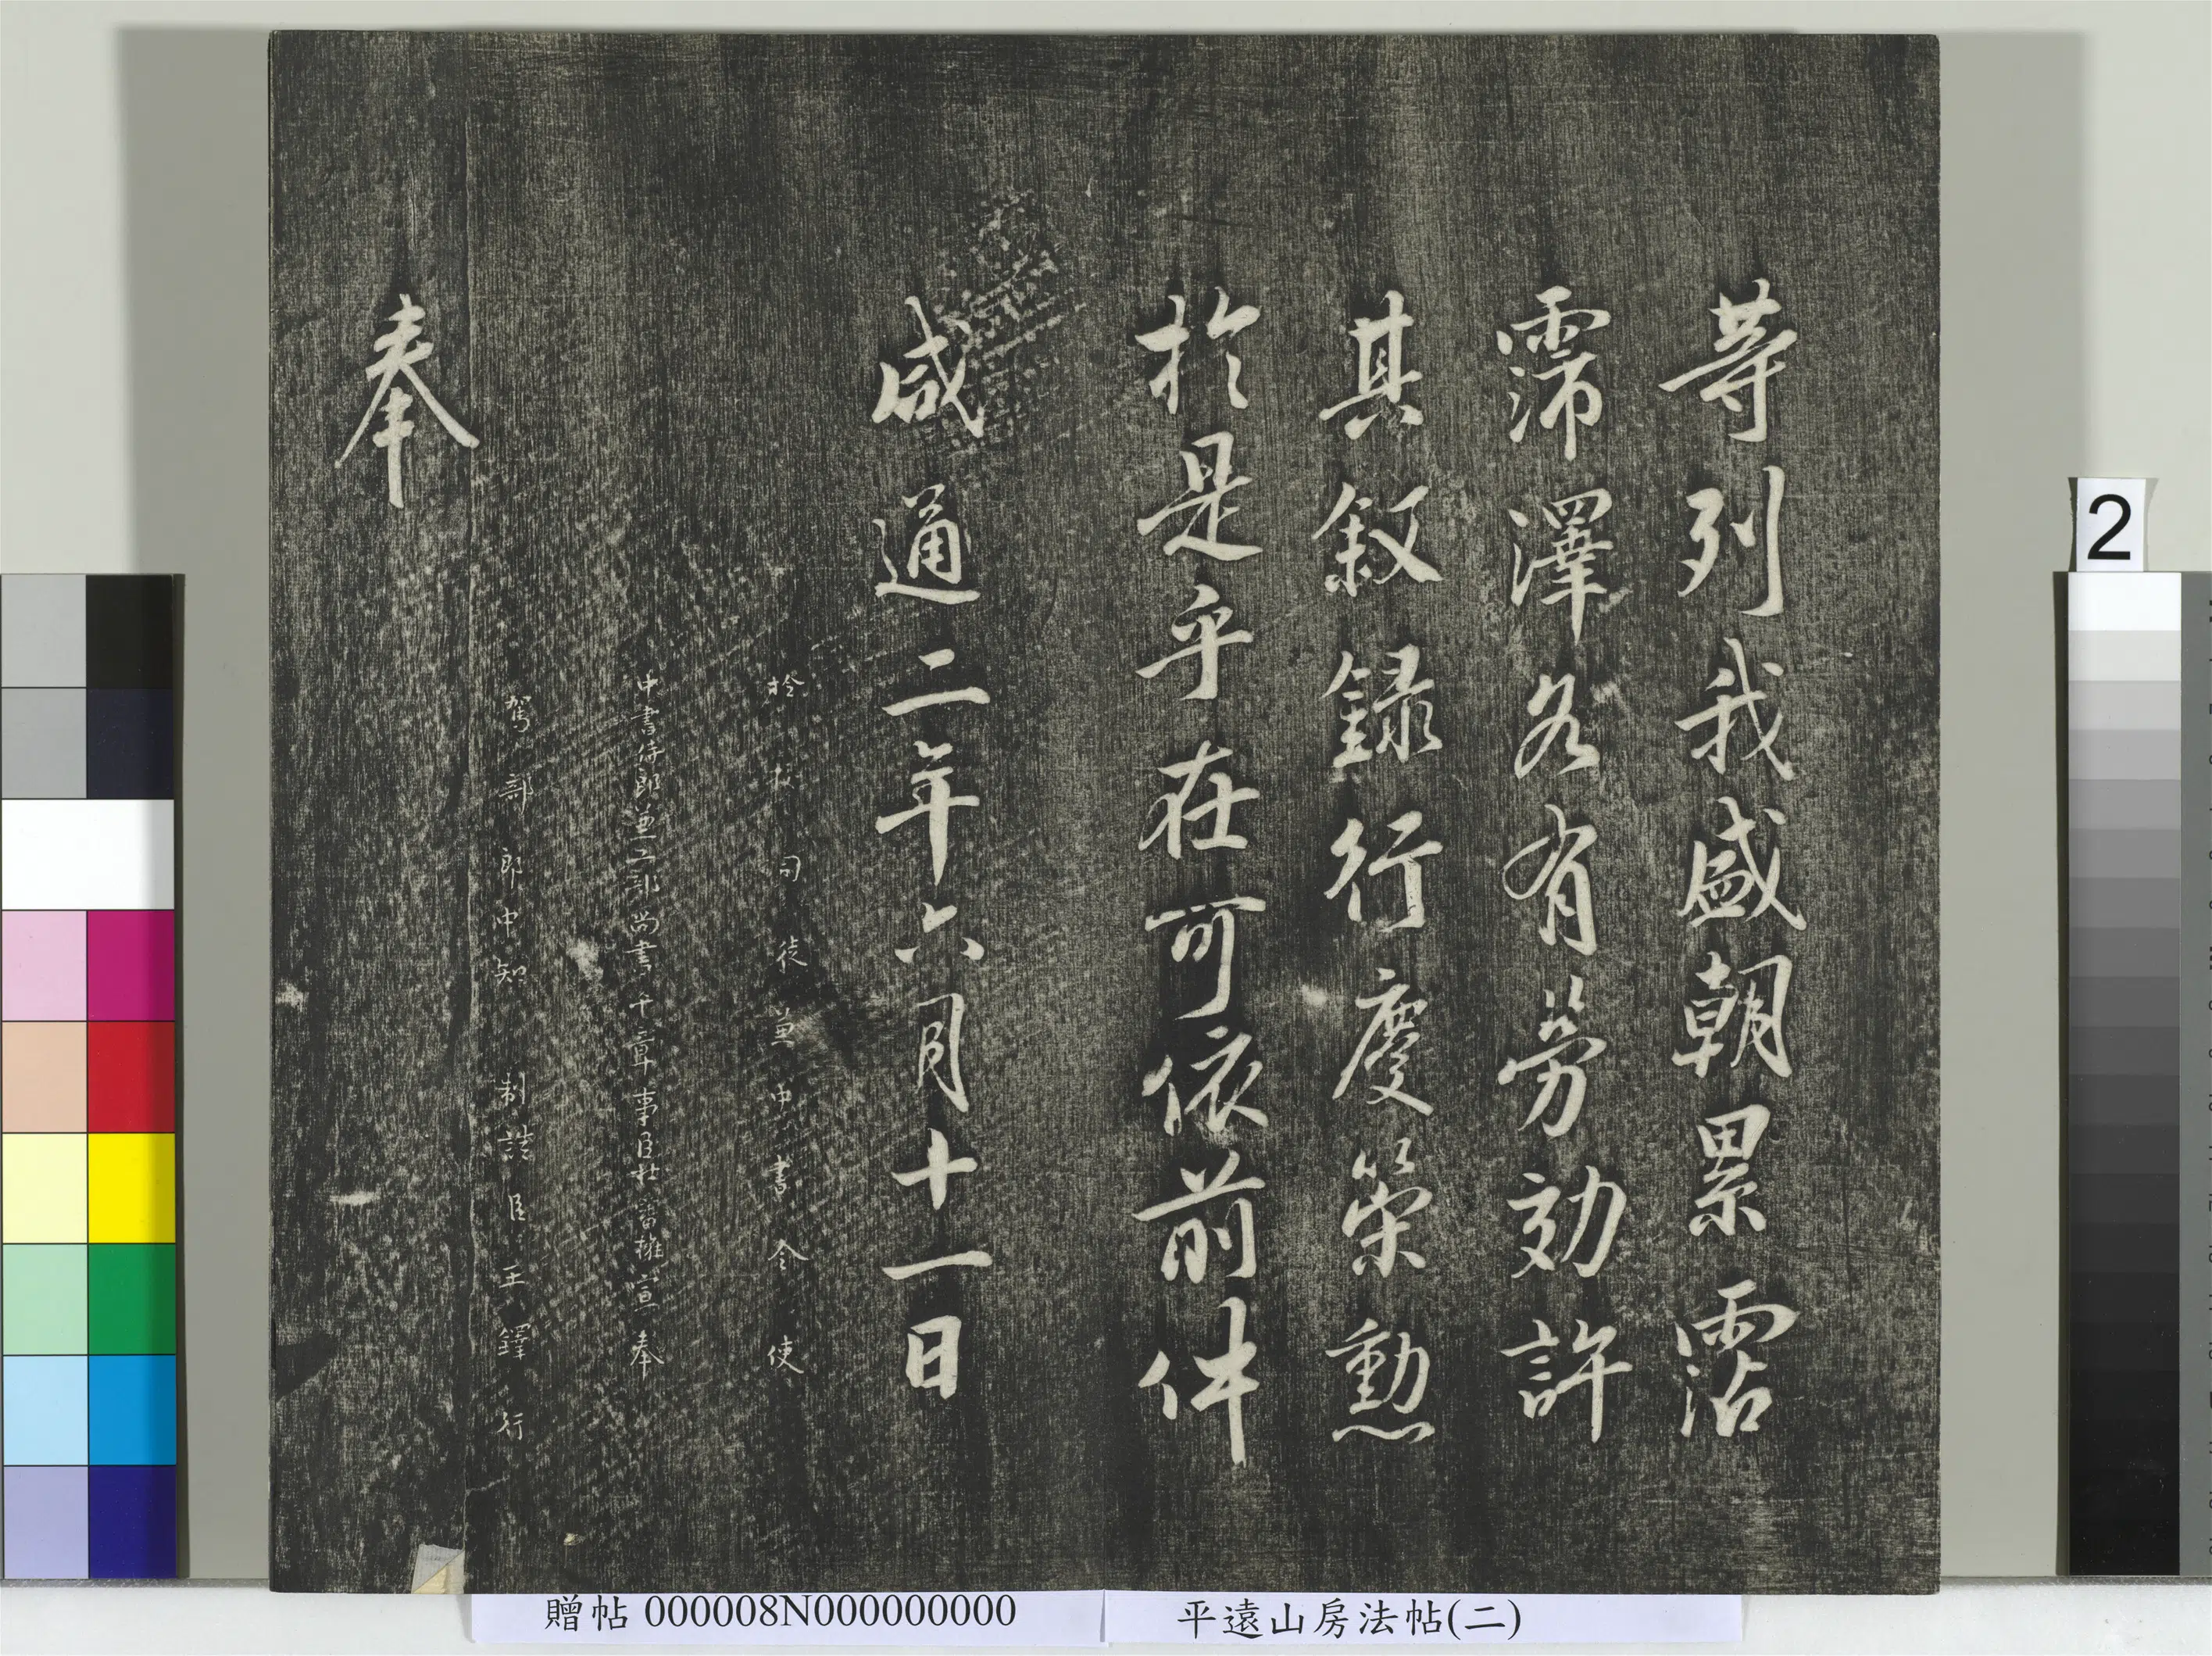 等列我盛朝累霑
霈澤各有勞効許
其敘錄行慶策勳
於是乎在可依前件
咸通二年六月十一日
檢校司徒兼中書令使
中書侍郎兼工部尚書平章事臣杜審權宣奉
駕部郎中知制誥臣王鐸行
奉
2
贈帖 000008N000000000
平遠山房法帖(二)